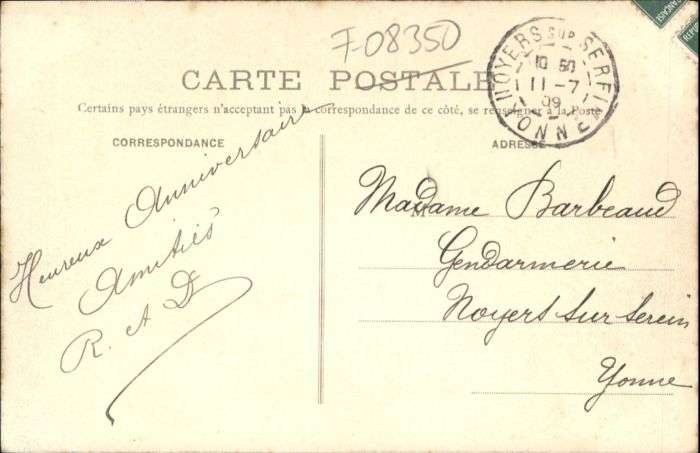 F-08350
CARTE POSTALE
Certains pays étrangers n'acceptant pas la correspondance de ce côté, se renseigner à la Poste
CORRESPONDANCE
ADRESSE
NOYERS SUR SEREIN
10 50
11-7
09
YONNE
Heureux Anniversaire
Amitiés
R. et D
Madame Barbeaud
Gendarmerie
Noyers sur serein
Yonne